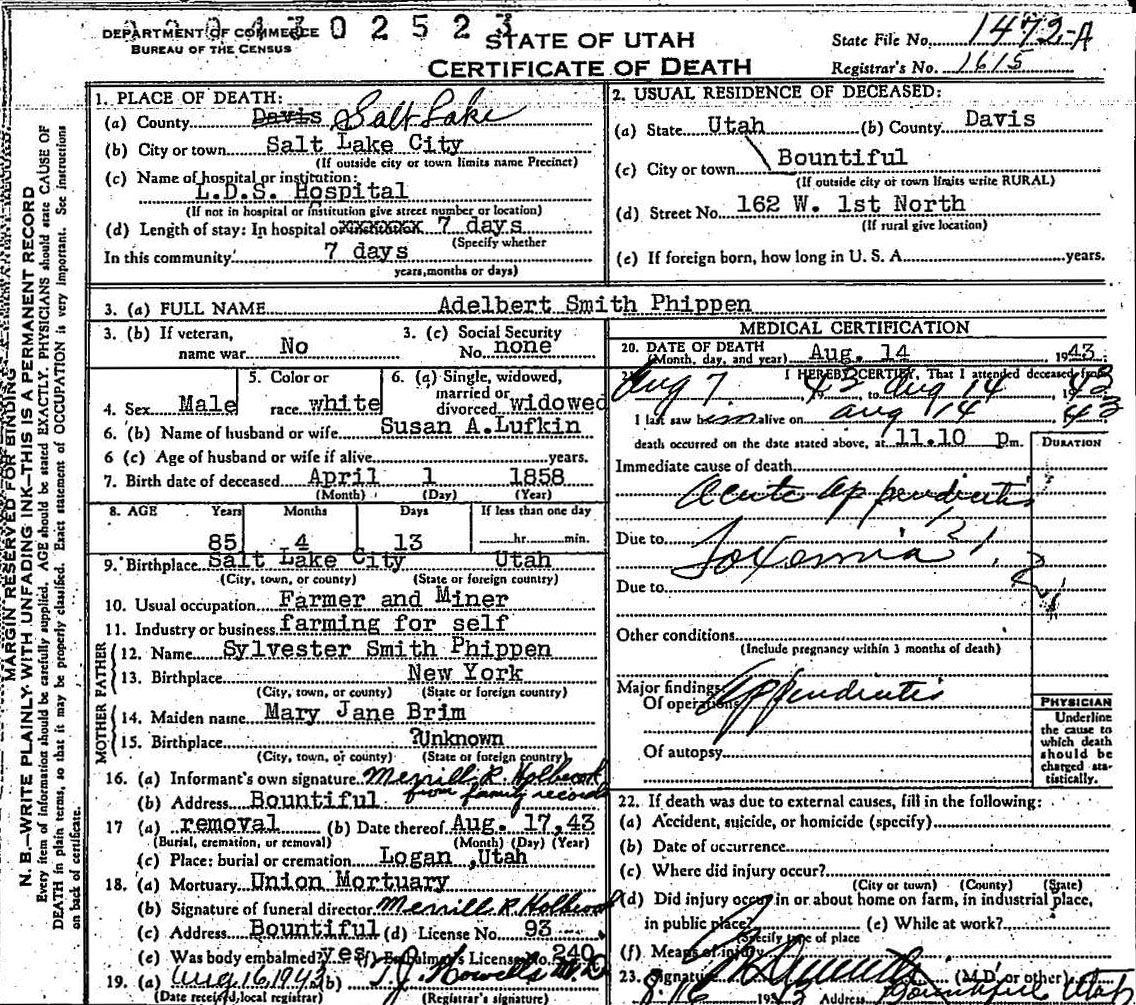 DEPARTMENT OF COMMERCE
BUREAU OF THE CENSUS
0 2 5 2 3
STATE OF UTAH
CERTIFICATE OF DEATH
State File No. 1472-A
Registrar's No. 1615
MARGIN RESERVED FOR BINDING
N. B.—WRITE PLAINLY WITH UNFADING INK—THIS IS A PERMANENT RECORD
Every item of information should be carefully supplied. AGE should be stated EXACTLY. PHYSICIANS should state CAUSE OF
DEATH in plain terms, so that it may be properly classified. Exact statement of OCCUPATION is very important. See instructions
on back of certificate.
1. PLACE OF DEATH:
(a) County Davis Salt Lake
(b) City or town Salt Lake City
(If outside city or town limits name Precinct)
(c) Name of hospital or institution:
L.D.S. Hospital
(If not in hospital or institution give street number or location)
(d) Length of stay: In hospital or xxxxxxx 7 days
(Specify whether
In this community 7 days
years, months or days)
2. USUAL RESIDENCE OF DECEASED:
(a) State Utah (b) County Davis
(c) City or town Bountiful
(If outside city or town limits write RURAL)
(d) Street No. 162 W. 1st North
(If rural give location)
(e) If foreign born, how long in U. S. A. years.
3. (a) FULL NAME Adelbert Smith Phippen
3. (b) If veteran, name war No
3. (c) Social Security No. none
4. Sex Male
5. Color or race white
6. (a) Single, widowed, married or divorced widowed
6. (b) Name of husband or wife Susan A.Lufkin
6 (c) Age of husband or wife if alive years.
7. Birth date of deceased April 1 1858
(Month) (Day) (Year)
8. AGE Years Months Days If less than one day
85 4 13 hr. min.
9. Birthplace Salt Lake City Utah
(City, town, or county) (State or foreign country)
10. Usual occupation Farmer and Miner
11. Industry or business farming for self
FATHER
12. Name Sylvester Smith Phippen
13. Birthplace New York
(City, town, or county) (State or foreign country)
MOTHER
14. Maiden name Mary Jane Brim
15. Birthplace ?Unknown
(City, town, or county) (State or foreign country)
16. (a) Informant's own signature Merrill R. Holbrook
from family records
(b) Address Bountiful
17 (a) removal (b) Date thereof Aug. 17,43
(Burial, cremation, or removal) (Month) (Day) (Year)
(c) Place: burial or cremation Logan ,Utah
18. (a) Mortuary Union Mortuary
(b) Signature of funeral director Merrill R Holbrook
(c) Address Bountiful (d) License No. 93
(e) Was body embalmed? yes (f) Embalmer's License No. 240
19. (a) Aug 16, 1943 (b) T. J. Howells M. D.
(Date received, local registrar) (Registrar's signature)
MEDICAL CERTIFICATION
20. DATE OF DEATH
(Month, day, and year) Aug. 14 1943
21. I HEREBY CERTIFY, That I attended deceased from
Aug 7 43 to Aug 14 1943
I last saw him alive on aug 14 43
death occurred on the date stated above, at 11.10 pm.
DURATION
Immediate cause of death
Acute appendicitis
Due to Toxemia
Due to
Other conditions
(Include pregnancy within 3 months of death)
Major findings:
Of operations Appendicitis
Of autopsy
PHYSICIAN
Underline
the cause to
which death
should be
charged sta-
tistically.
22. If death was due to external causes, fill in the following:
(a) Accident, suicide, or homicide (specify)
(b) Date of occurrence
(c) Where did injury occur?
(City or town) (County) (State)
(d) Did injury occur in or about home on farm, in industrial place,
in public place? (e) While at work?
(Specify type of place
(f) Means of injury
23. Signature (M.D. or other)
8-16 1943 Address Bountiful Utah